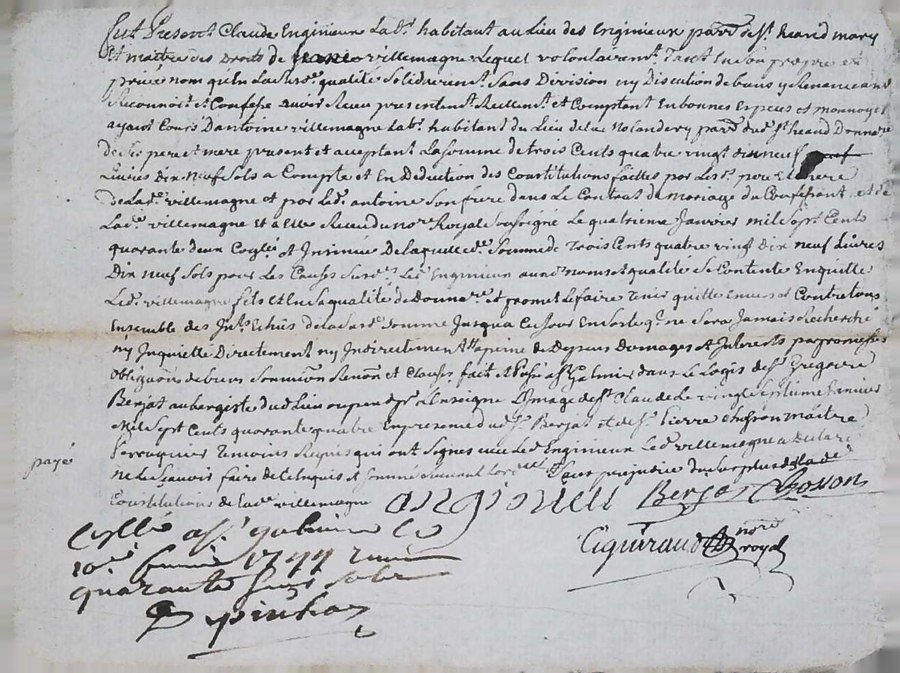 fut Present Claude Enginieux Labr. habitant au Lieu des Enginieux parr. de St. heand mary
Et maitre des Droits de villemagne Lequel volontairemt. tant En Son propre et
prive nom qu'En La Susde. qualité Solidairemt. Sans Division ny Discution de biens y Renonceant
Reconnoit Et Confesse avoir Receu presentemt. Reellemt. et Comptant En bonnes Especes et monnoyes
ayant Cours D'antoine villemagne Labr. habitant du Lieu de la parr. dud. St. heand Donnare.
de Ses pere et mere present et acceptant La Somme de trois Cents quatre vingt dix neuf
Livres Dix Neuf Sols a Compte et En Deduction des Constitutions faittes par Lesd. pere Et mere
de Lade. villemagne et par Led. antoine Son frere dans Le Contrat de mariage du Confessant et de
Lade. villemagne et a Elle Receu du nore. Royal Soussigné Le quatrieme Janvier mil Sept Cents
quarante deux Collé. et Insinué De Laquelle de. Somme de Trois Cents quatre vingt Dix neuf Livres
Dix neuf Sols pour Les Causes Susdes. Led. Enginieux aux d. noms et qualité Se Contente En quitte
Led. villemagne fils et En Sa qualité de Donnare. et promet Le faire tenir quitte Envers et Contre tous
Ensemble des Ints. Echus de La Susde. Somme Jusqua Ce Jour En Sorte q. ne Sera Jamais Recherché
ny Inquietté Directement ny Indirectement a peine de Depens Domages et Interets par promesses
obligaons. de biens Soumion. Renon. et Clauses fait et Passé a St. Galmier dans Le Logis de Sr. Gregoire
Berjat aubergiste dud. Lieu ou pend pr. Enseigne L'Image de St. Claude Le vingt Septieme Janvier
Mil Sept Cents quarante quatre En presence dud. Sr. Berjat et de Sr. Pierre Chosson maitre
Perruquier Temoins Requis qui ont Signes avec Led. Enginieux Led. villemagne a Declaré
ne Le Scavoir faire de Ce Enquis et Sommé Suivant Lordce. Sans prejudice du Surplus de Lade.
Constitutions de Lade. villemagne
payé
Enginieux Berjat Chosson
Cyguiraud nore. royal
Collé a St. galmier le
10e. 1744 reçu
quarante huit sols
Depinhac